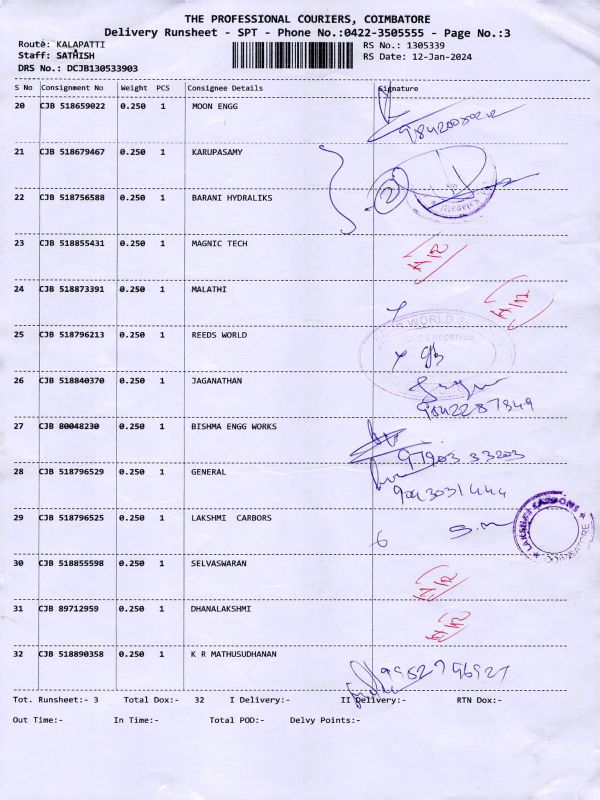 THE PROFESSIONAL COURIERS, COIMBATORE
Delivery Runsheet - SPT - Phone No.:0422-3505555 - Page No.:3
Route: KALAPATTI
RS No.: 1305339
Staff: SATHISH
RS Date: 12-Jan-2024
DRS No.: DCJB130533903
S No Consignment No Weight PCS Consignee Details Signature
20 CJB 518659022 0.250 1 MOON ENGG
21 CJB 518679467 0.250 1 KARUPASAMY
22 CJB 518756588 0.250 1 BARANI HYDRALIKS
2
23 CJB 518855431 0.250 1 MAGNIC TECH
24 CJB 518873391 0.250 1 MALATHI
25 CJB 518796213 0.250 1 REEDS WORLD
WORLD
RECEIVED
26 CJB 518840370 0.250 1 JAGANATHAN
9842287349
27 CJB 80048230 0.250 1 BISHMA ENGG WORKS
97903 33203
28 CJB 518796529 0.250 1 GENERAL
9043031444
29 CJB 518796525 0.250 1 LAKSHMI CARBORS
6 S.M
LAKSHMI CARBONS
COIMBATORE
30 CJB 518855598 0.250 1 SELVASWARAN
31 CJB 89712959 0.250 1 DHANALAKSHMI
32 CJB 518890358 0.250 1 K R MATHUSUDHANAN
9962796927
Tot. Runsheet:- 3 Total Dox:- 32 I Delivery:- II Delivery:- RTN Dox:-
Out Time:- In Time:- Total POD:- Delvy Points:-